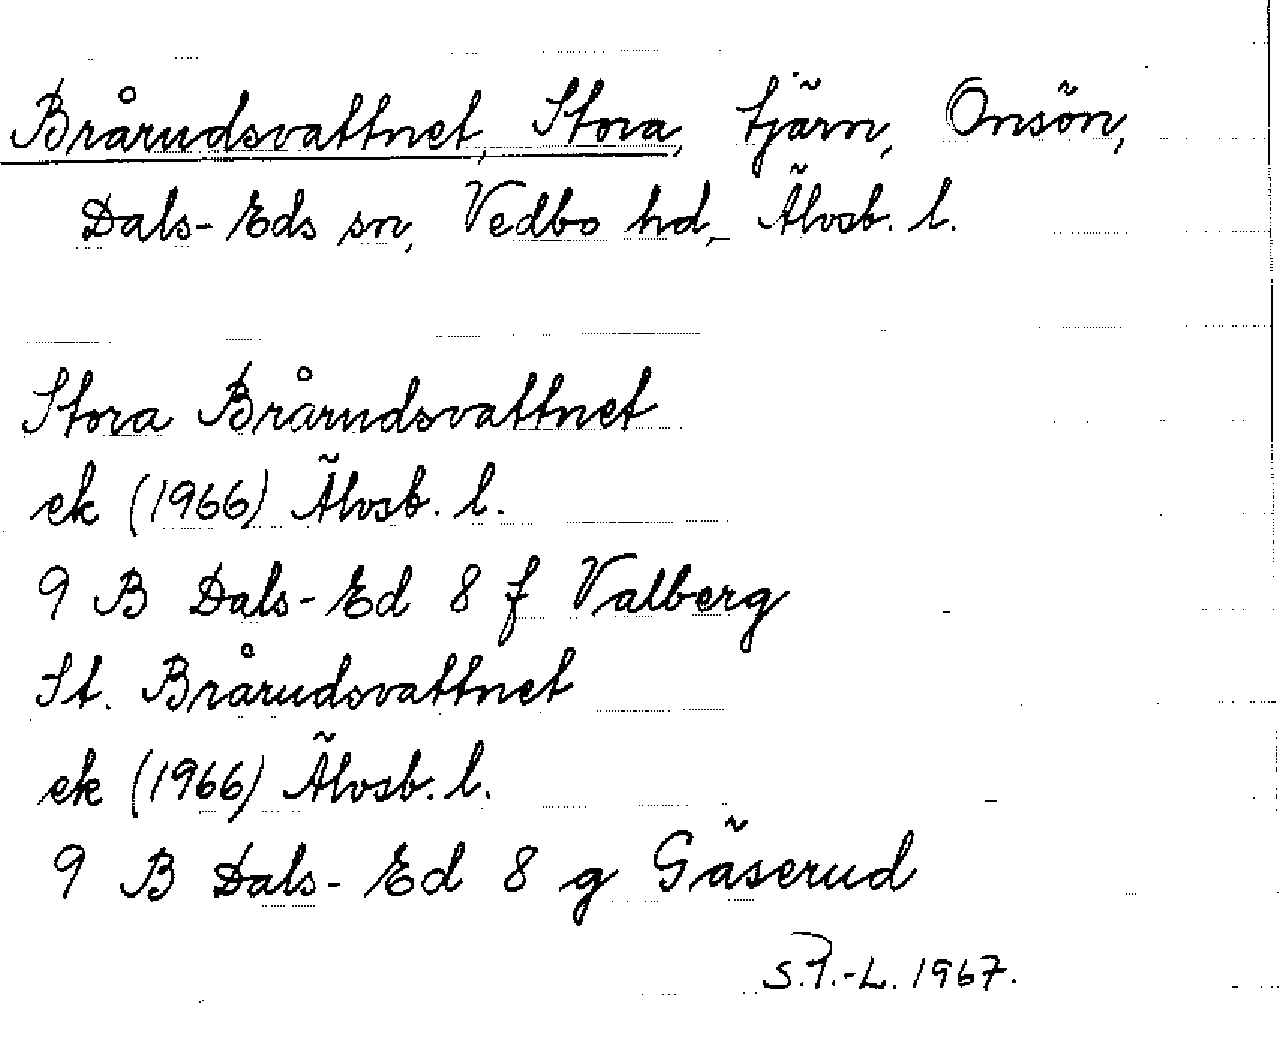 Brårudsvattnet, Stora, tjärn, Onsön,
Dals-Eds sn, Vedbo hd, Älvsb. l.
Stora Brårudsvattnet
ek (1966) Älvsb. l.
9 B Dals-Ed 8 f Valberg
St. Brårudsvattnet
ek (1966) Älvsb. l.
9 B Dals-Ed 8 g Gäserud
S.P.-L. 1967.